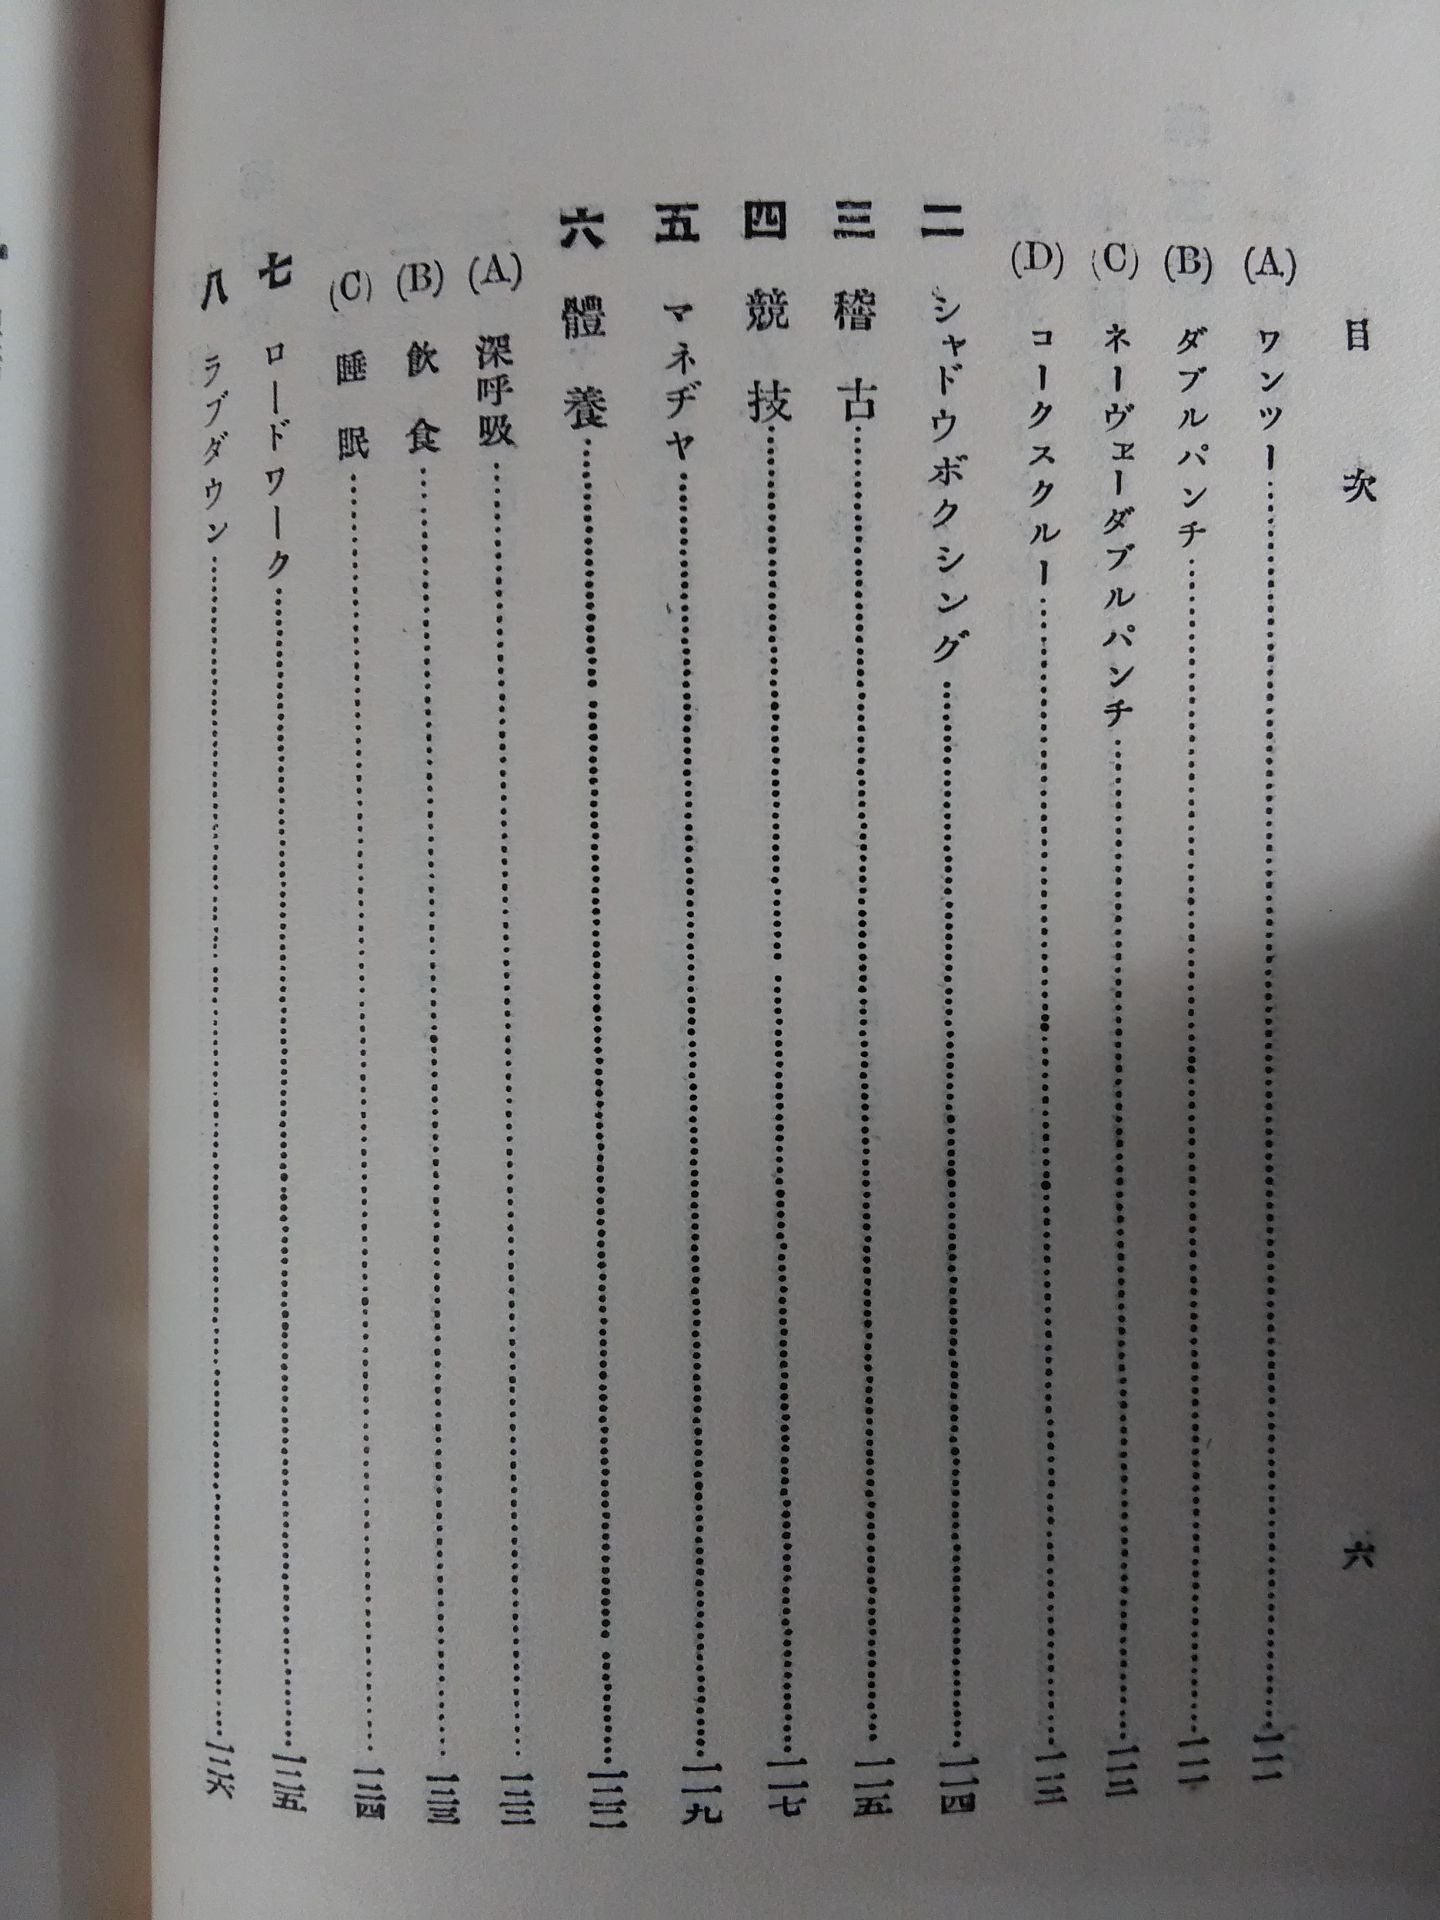 目次 六
(A) ワンツー……一一一
(B) ダブルパンチ……一一一
(C) ネーヴヱーダブルパンチ……一一二
(D) コークスクルー……一一三
二 シャドウボクシング……一一四
三 稽古……一一五
四 競技……一一七
五 マネヂヤ……一一九
六 體養……一二二
(A) 深呼吸……一二二
(B) 飲食……一二三
(C) 睡眠……一二四
七 ロードワーク……一二五
八 ラブダウン……一二六